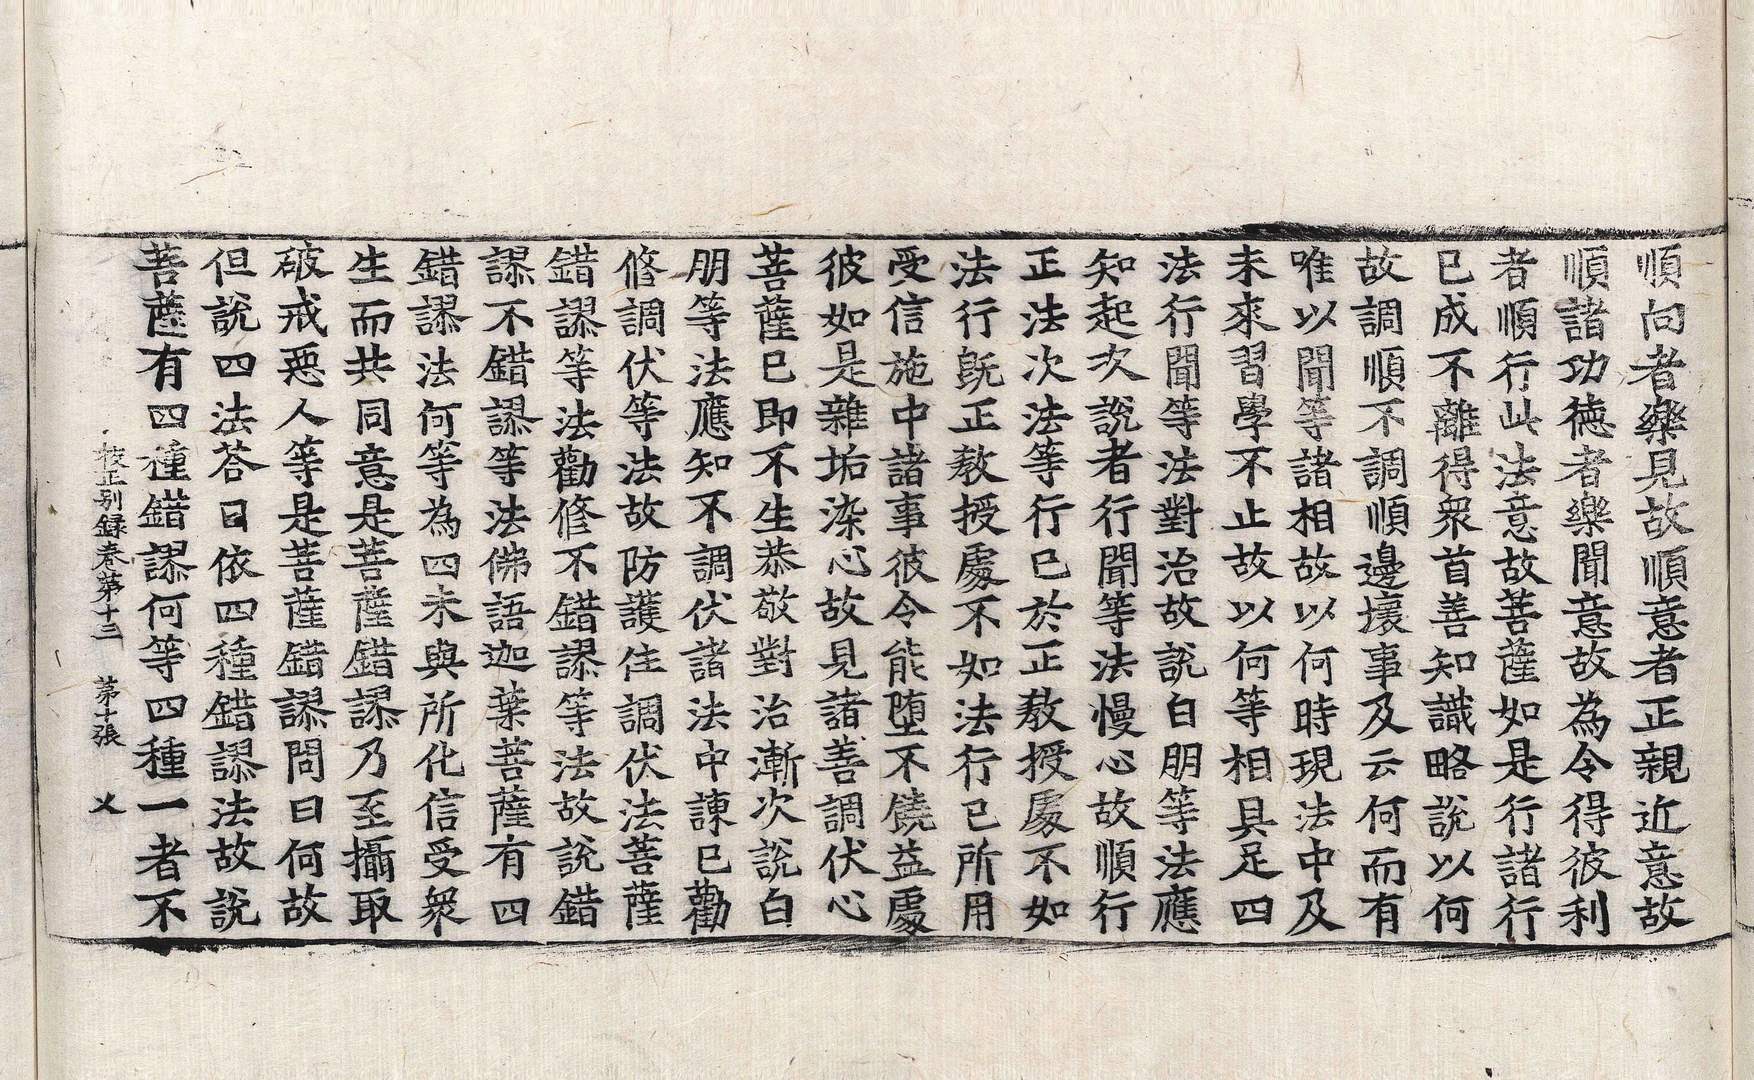 順向者樂見故順意者正親近意故
順諸功德者樂聞意故為令得彼利
者順行此法意故菩薩如是行諸行
已成不離得衆首善知識略說以何
故調順不調順邊壞事及云何而有
唯以聞等諸相故以何時現法中及
未來習學不止故以何等相具足四
法行聞等法對治故說白朋等法應
知起次說者行聞等法慢心故順行
正法次法等行已於正敎授處不如
法行旣正敎授處不如法行已所用
受信施中諸事彼令能墮不饒益處
彼如是雜垢染心故見諸善調伏心
菩薩已即不生恭敬對治漸次說白
朋等法應知不調伏諸法中諫已勸
修調伏等法故防護住調伏法菩薩
錯謬等法勸修不錯謬等法故說錯
謬不錯謬等法佛語迦葉菩薩有四
錯謬法何等為四未與所化信受衆
生而共同意是菩薩錯謬乃至攝取
破戒惡人等是菩薩錯謬問曰何故
但說四法荅曰依四種錯謬法故說
菩薩有四種錯謬何等四種一者不
校正別録卷第十三　第十張　㐅